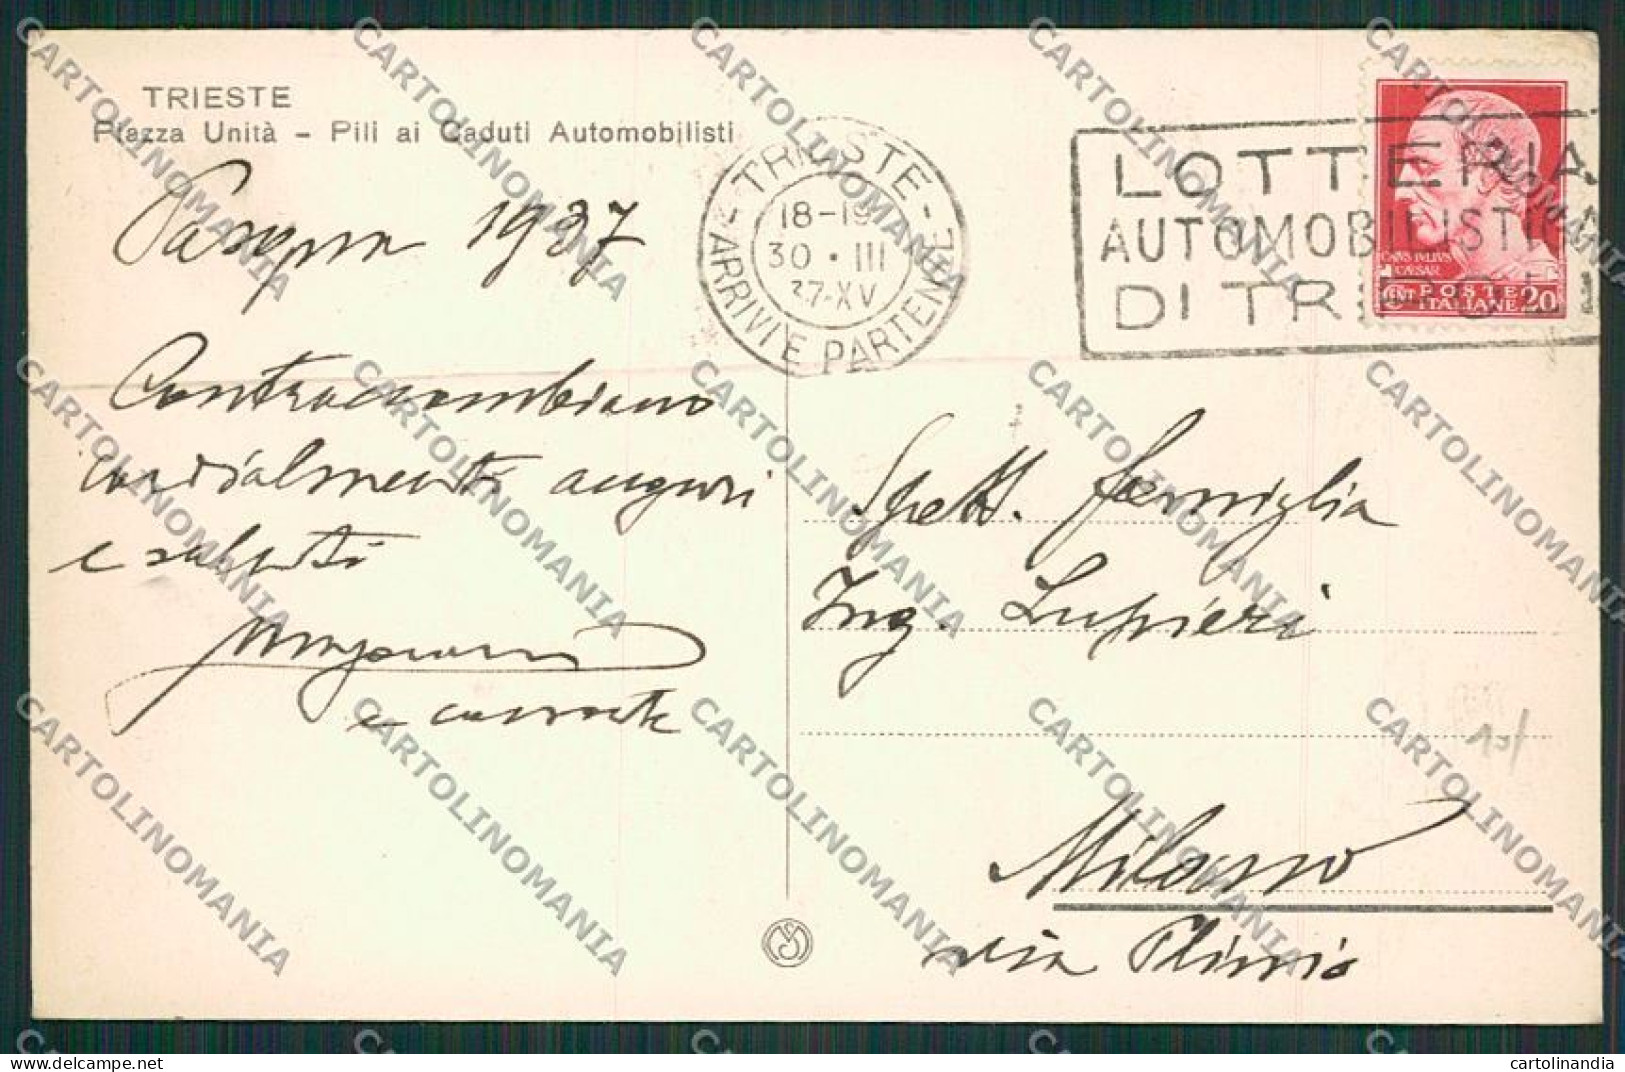 TRIESTE
Piazza Unità - Pili ai Caduti Automobilisti
Pasqua 1937
Contraccambiano
cordialmente auguri
e saluti
e consorte
TRIESTE
18-19
30 · III
37-XV
ARRIVI E PARTENZE
LOTTERIA
AUTOMOBILISTICA
DI TRIPOLI
CAIVS IVLIVS
CAESAR
CENT POSTE ITALIANE 20
Spett. famiglia
Ing. Lupieri
Milano
via Plinio
CARTOLINOMANIA
www.delcampe.net
cartolinandia